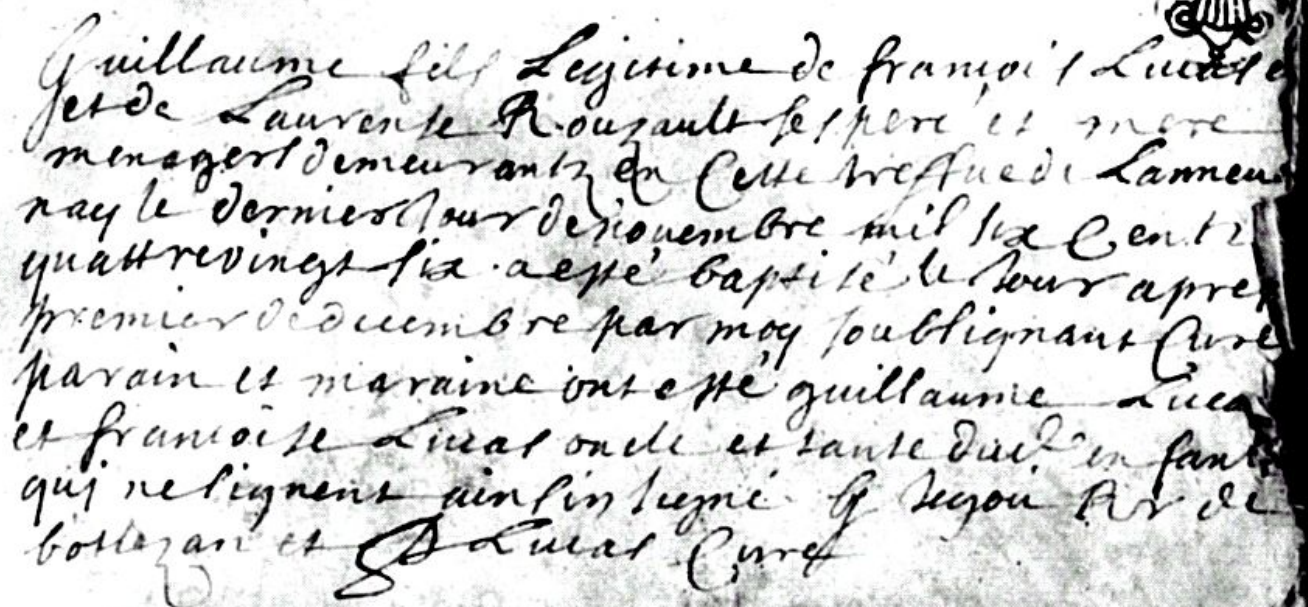 Guillaume fils Legitime de francois Lucas
et de Laurense Rouzault ses pere et mere
menagers demeurantz en Cette treffve de Lanneue
nay le dernier Jour de novembre mil six Centz
quattrevingt six a esté baptisé le Jour apres
premier de decembre par moy soubsignant Curé
parain et maraine ont esté guillaume Lucas
et francoise Lucas oncle et tante dud enfant
qui ne signent ainsin signé G de
et Lucas Curé